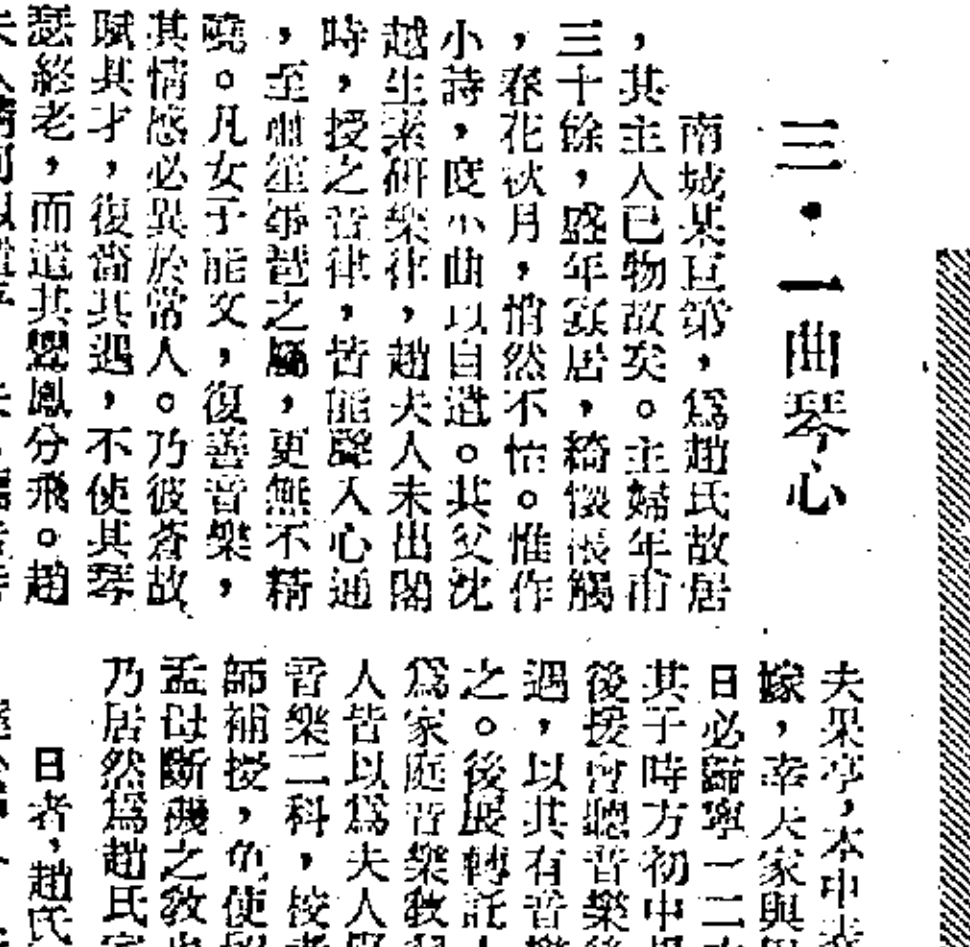 三・一曲琴心
南城某巨第,爲趙氏故居
,其主人已物故矣。主婦年甫
三十餘,盛年寡居,綺懷悵觸
,春花秋月,悄然不怡。惟作
小詩,度小曲以自遣。其父沈
越生素研樂律,趙夫人未出閣
時,授之音律,皆能聲入心通
,至簫笙箏琶之屬,更無不精
曉。凡女子能文,復善音樂,
其情感必異於常人。乃彼蒼故
賦其才,復嗇其遇,不使其琴
瑟終老,而遣其鸞鳳分飛。趙
夫果亭,本中
嫁,幸夫家與
日必歸寧一二
其子時方初中
後援會聽音樂
遇,以其有音樂
之。後展轉託人
爲家庭音樂教
人皆以爲夫人
音樂二科,按
師補授,角使
孟母斷機之教
乃居然爲趙氏
日者,趙氏